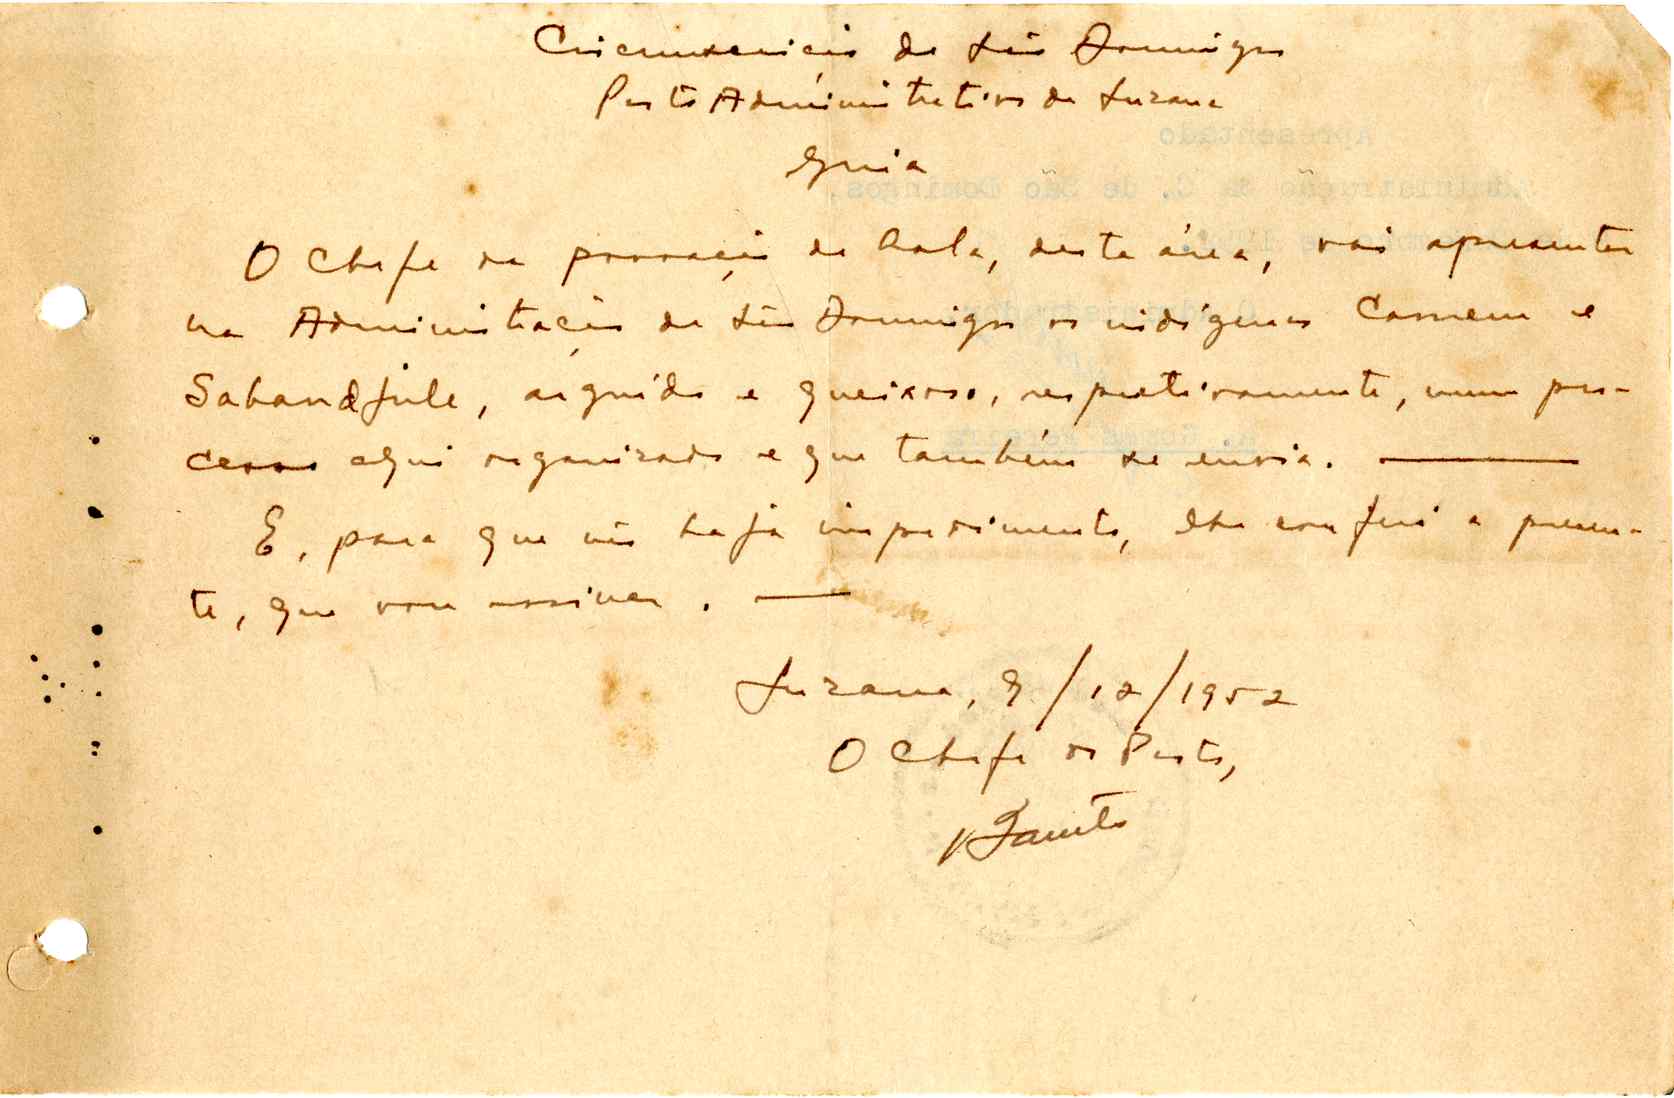 Circunscrição de São Domingos
Posto Administrativo de Suzana
Guia
O Chefe da povoação de Bola, desta área, vai apresentar
na Administração de São Domingos os indígenas Camem e
Sabandjule, arguido e queixoso, respectivamente, num pro-
cesso aqui organizado e que também se envia.
E, para que não haja impedimento, lhe conferi a presen-
te, que vou assinar.
Suzana, 9/12/1952
O Chefe do Posto,
Apresentado
Administração da C. de São Domingos,
O Administrador
A. Gomes Pereira